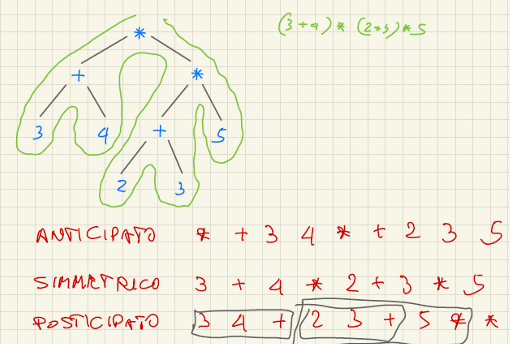 (3+4) * (2+3) * 5
*
+ *
3 4 + 5
2 3
ANTICIPATO * + 3 4 * + 2 3 5
SIMMETRICO 3 + 4 * 2 + 3 * 5
POSTICIPATO 3 4 + 2 3 + 5 * *